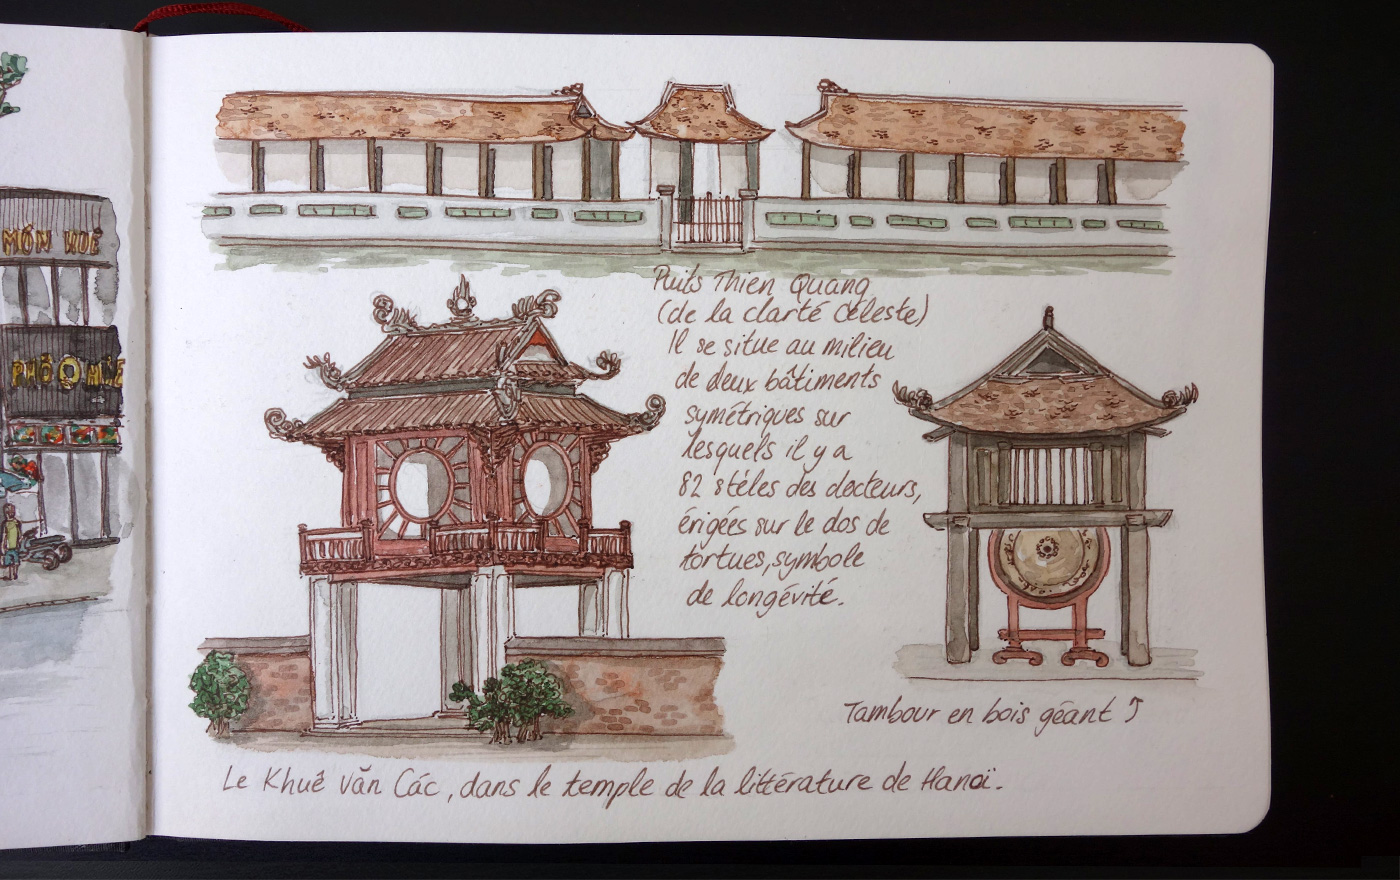 MÓN HUẾ
PHỐ
Puits Thien Quang
(de la clarté céleste)
Il se situe au milieu
de deux bâtiments
symétriques sur
lesquels il y a
82 stèles des docteurs,
érigées sur le dos de
tortues, symbole
de longévité.
Tambour en bois géant
Le Khuê văn Các, dans le temple de la littérature de Hanoï.